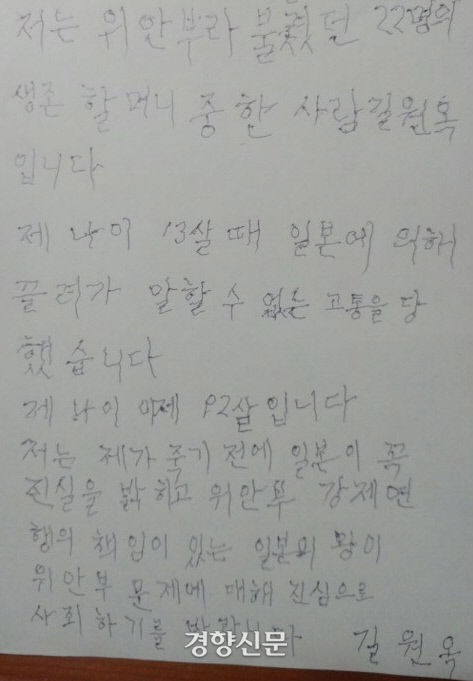 저는 위안부라 불렸던 22명의
생존 할머니 중 한 사람 길원옥
입니다
제 나이 13살 때 일본에 의해
끌려가 말할 수 없는 고통을 당
했습니다
제 나이 이제 92살입니다
저는 제가 죽기 전에 일본이 꼭
진실을 밝히고 위안부 강제연
행의 책임이 있는 일본의 왕이
위안부 문제에 대해 진심으로
사죄하기를 바랍니다
길원옥
경향신문